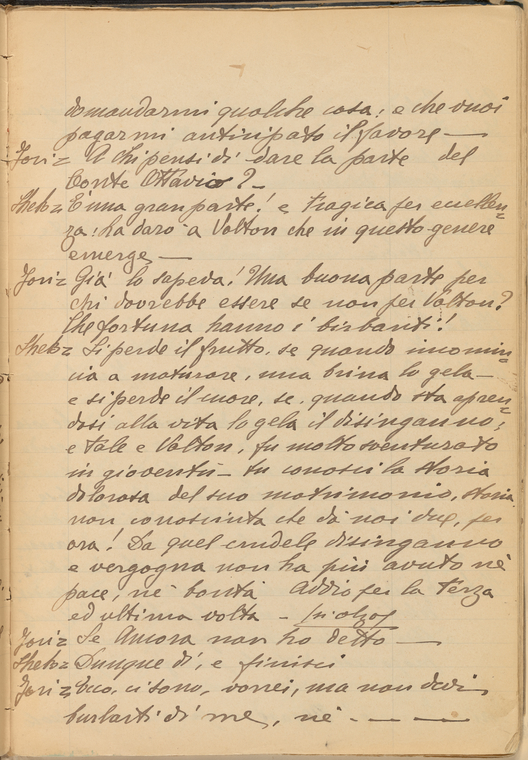 domandarmi qualche cosa; e che vuoi
pagarmi anticipato il favore —
Jori= A chi pensi di dare la parte del
Conte Ottavio? –
Shek= E' una gran parte! e tragica per eccellen=
za: la darò a Valton che in questo genere
emerge —
Jori= Già lo sapeva! Una buona parte per
chi dovrebbe essere se non per Valton?
Che fortuna hanno i birbanti!
Shek= Si perde il frutto, se quando incomin=
cia a maturare, una brina lo gela —
e si perde il cuore, se, quando sta apren=
dosi alla vita lo gela il disinganno;
e tale e Valton, fu molto sventurato
in gioventù — tu conosci la storia
dolorosa del suo matrimonio, storia
non conosciuta che da noi due, per
ora! Da quel crudele disinganno
e vergogna non ha più avuto nè
pace, nè bontà Addio per la terza
ed ultima volta –
Jori= Se Ancora non ho detto —
Shek= Dunque di', e finisci
Jori= Ecco, ci sono, vorrei, ma non devi
burlarti di me, nè - — — —